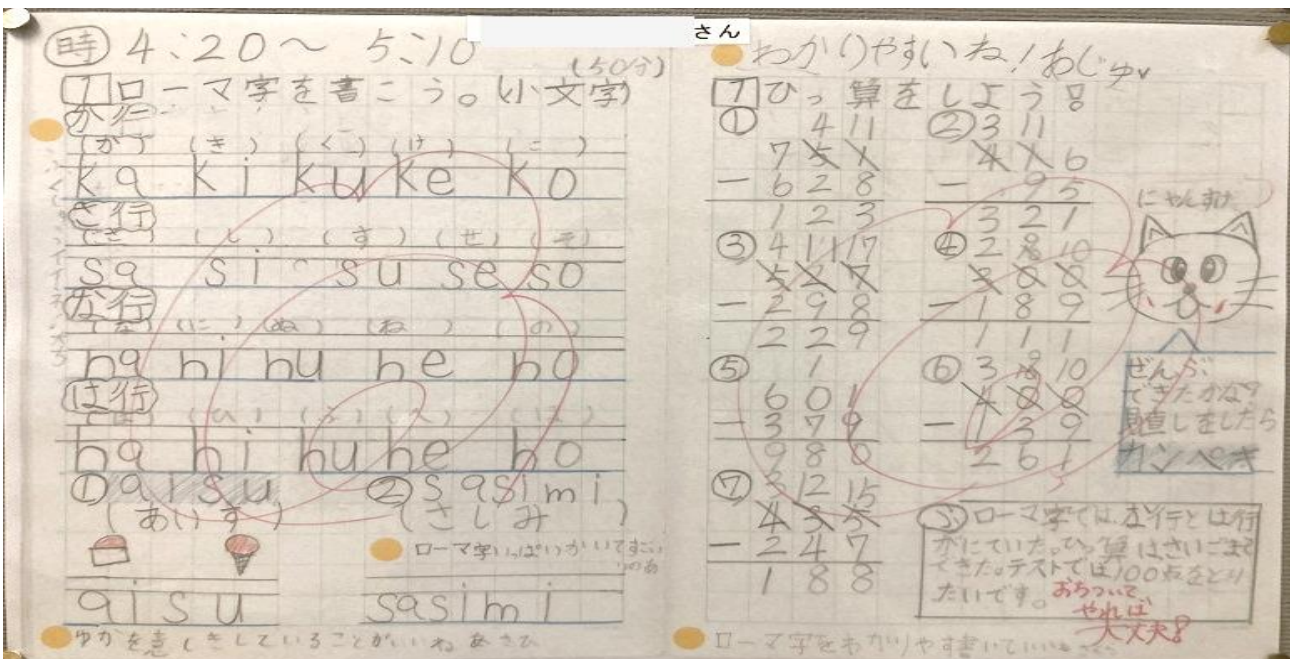 さん
時 4:20〜 5:10
(50分)
1 ローマ字を書こう。(小文字)
か行
(か) (き) (く) (け) (こ)
ka ki ku ke ko
さ行
(さ) (し) (す) (せ) (そ)
sa si su se so
な行
(な) (に) (ぬ) (ね) (の)
na ni nu ne no
は行
(は) (ひ) (ふ) (へ) (ほ)
ha hi hu he ho
① aisu ② sasimi
(あいす) (さしみ)
ローマ字いっぱいかいてすごい
aisu sasimi
ゆかを意しきしていることがいいね あさひ
わかりやすいね!あじゅ
1 ひっ算をしよう!
① 4 11
7 5 1
− 6 2 8
1 2 3
② 3 11
4 1 6
− 9 5
3 2 1
③ 4 11 17
5 2 7
− 2 9 8
2 2 9
④ 2 9 10
3 0 0
− 1 8 9
1 1 1
⑤ 1
6 0 1
− 3 7 9
9 8 0
⑥ 3 9 10
4 0 0
− 1 3 9
2 6 1
⑦ 3 12 15
4 3 5
− 2 4 7
1 8 8
にゃんすけ
ぜんぶ
できたかな?
見直しをしたら
カンペキ
ふ ローマ字では、な行とは行
がにていた。ひっ算はさいごまで
できた。テストでは100点をとり
たいです。
おちついて、
やれば
大丈夫!
ローマ字をわかりやす書いていいね